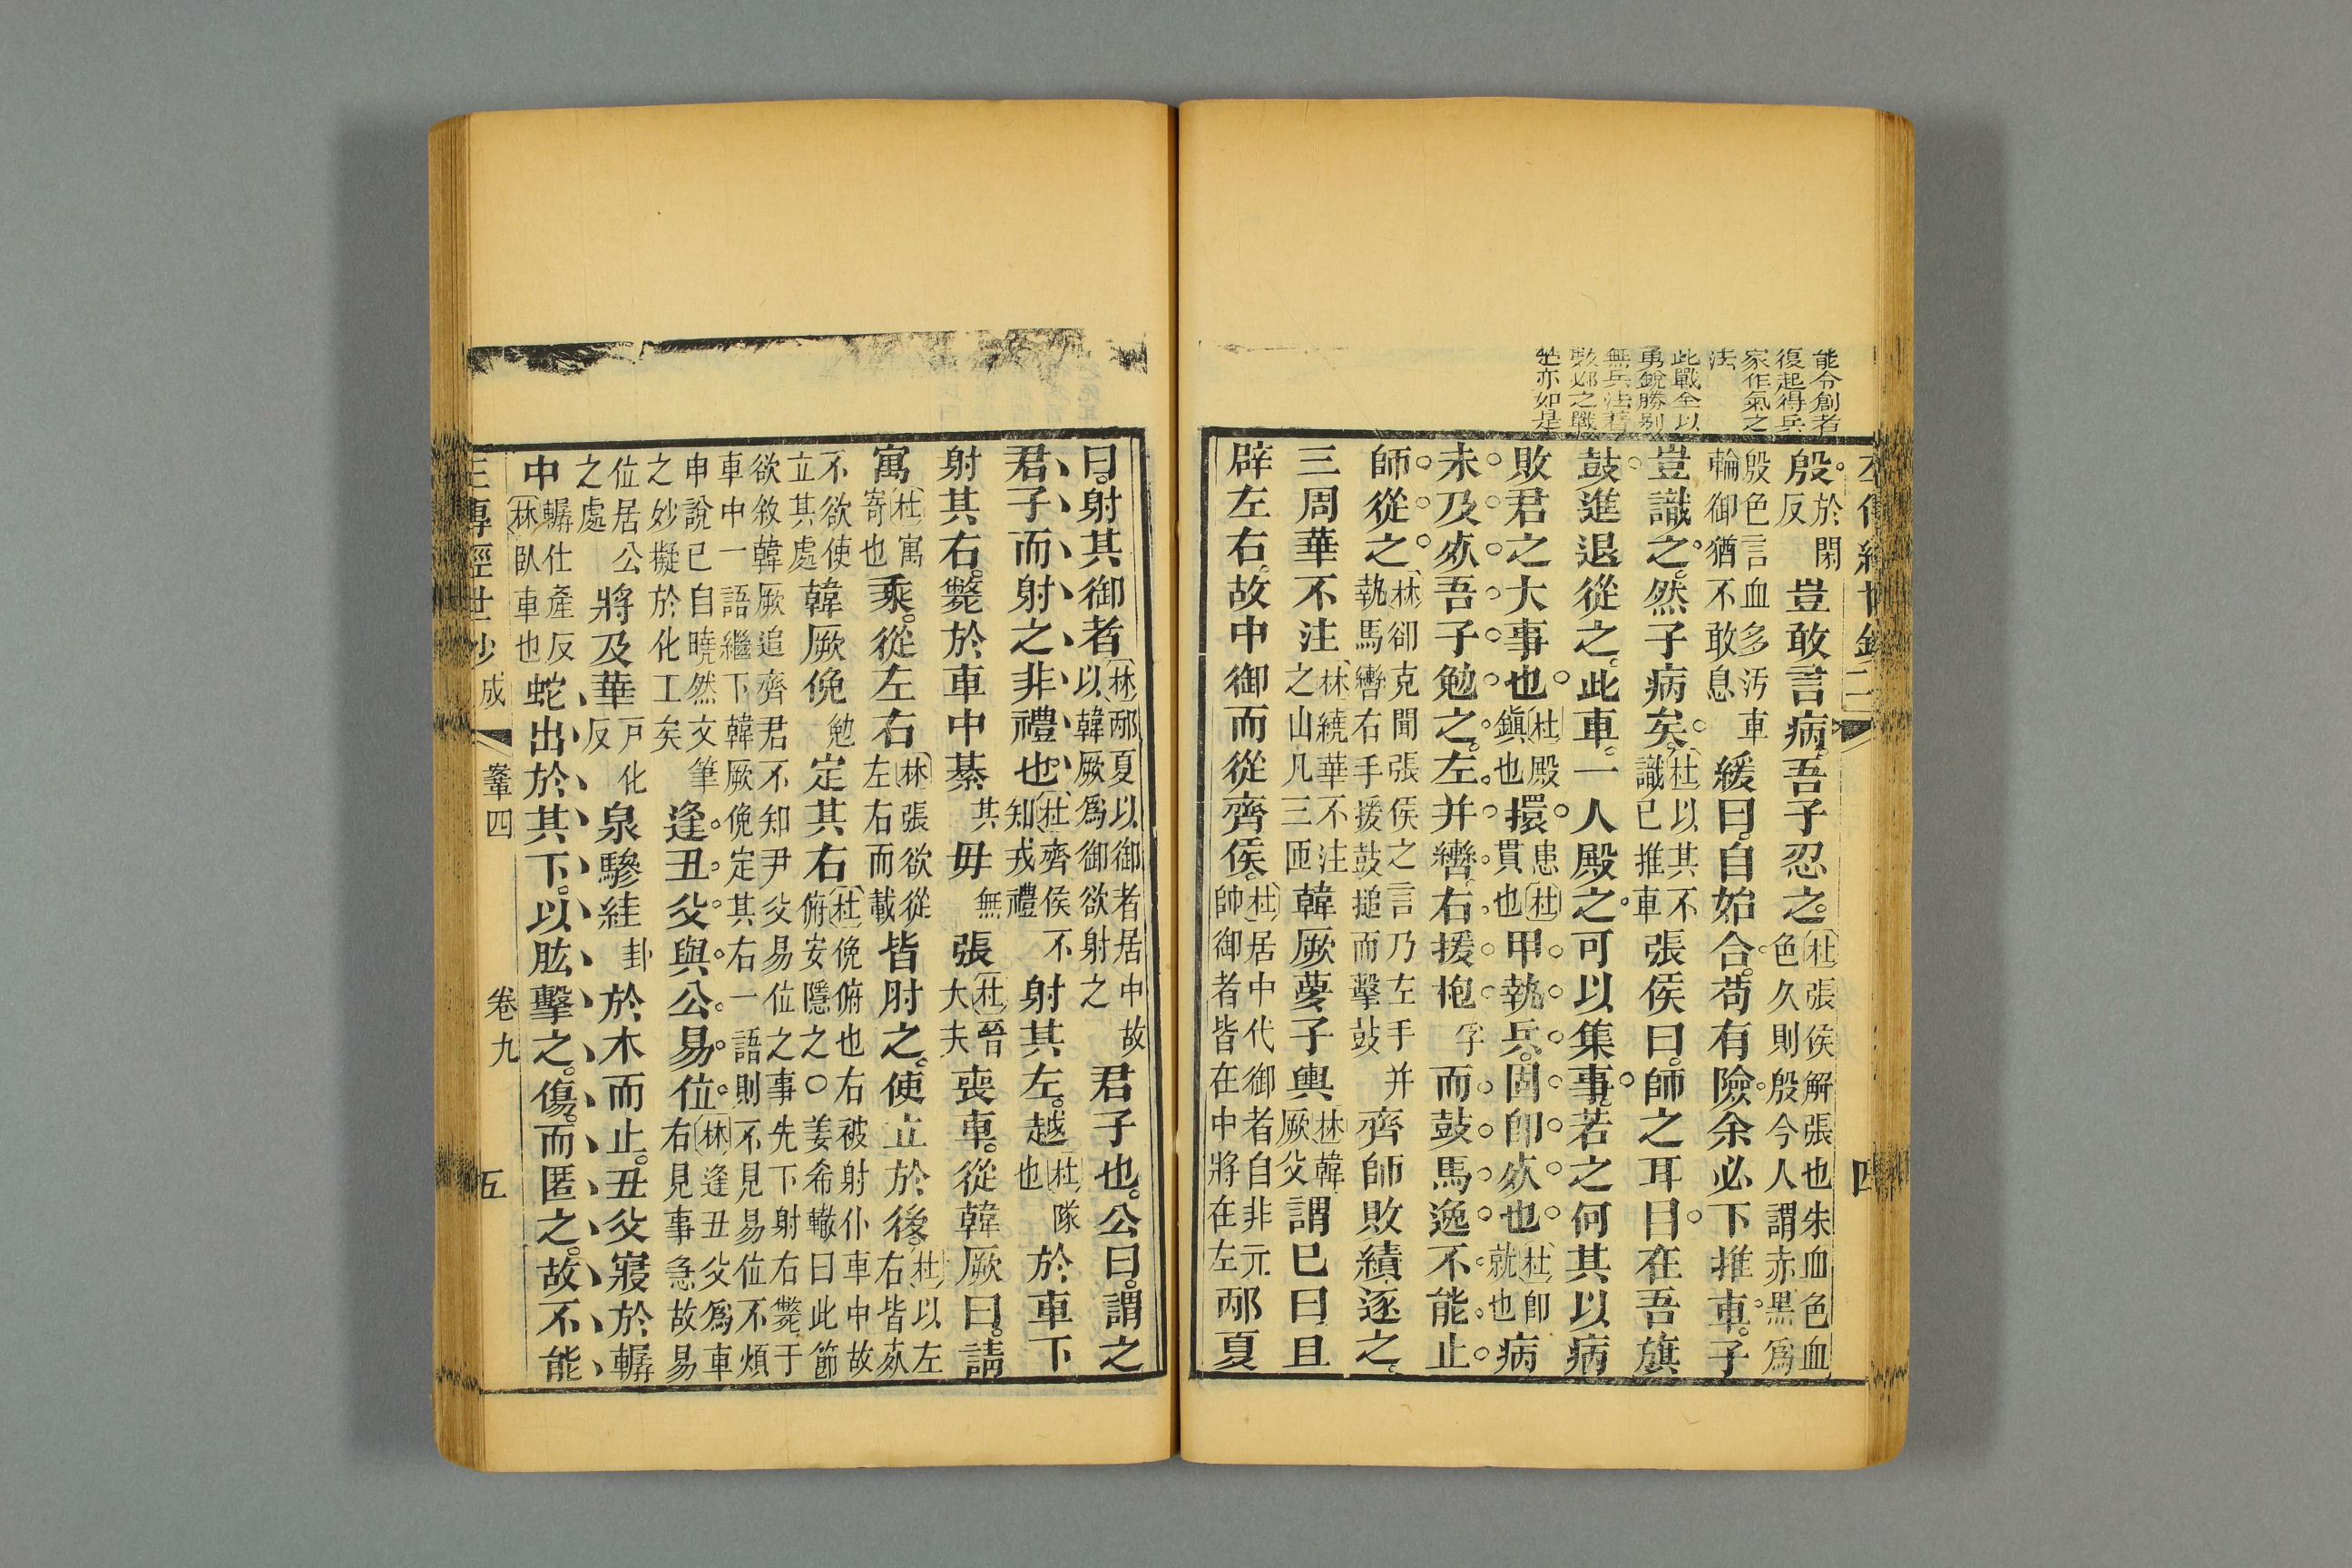 能令創者
復起得兵
家作氣之
法
此戰全以
勇銳勝別
無兵法著
敗邲之戰
楚亦如是
殷於閑反豈敢言病吾子忍之杜張侯解張也朱血色血色久則殷今人謂赤黑爲
殷色言血多汚車輪御猶不敢息緩曰自始合苟有險余必下推車子
豈識之然子病矣杜以其不識已推車張侯曰師之耳目在吾旗
鼓進退從之此車一人殿之可以集事若之何其以病
敗君之大事也杜殿鎭也擐患杜貫也甲執兵固卽死也杜卽就也病
未及死吾子勉之左并轡右援枹字而鼓馬逸不能止
師從之林郤克聞張侯之言乃左手并執馬轡右手援鼓搥而擊鼓齊師敗績逐之
三周華不注林繞華不注之山凡三匝韓厥夢子輿林韓厥父謂已曰且
辟左右故中御而從齊侯杜居中代御者自非元帥御者皆在中將在左邴夏
曰射其御者林邴夏以御者居中故以韓厥爲御欲射之君子也公曰謂之
君子而射之非禮也杜齊侯不知戎禮射其左越杜隊也於車下
射其右斃於車中綦其毋無張杜晉大夫喪車從韓厥曰請
寓杜寓寄也乘從左右林張欲從左右而載皆肘之使立於後杜以左右皆死
不欲使立其處韓厥俛勉定其右杜俛俯也右被射仆車中故俯安隱之○姜希轍曰此節
欲敘韓厥追齊君不知尹父易位之事先下射右斃于車中一語繼下韓厥俛定其右一語則不見易位不煩
申說已自曉然文筆之妙擬於化工矣逢丑父與公易位林逢丑父爲車右見事急故易
位居公之處將及華戸化反泉驂絓卦於木而止丑父寢於轏
中轏仕產反林臥車也蛇出於其下以肱擊之傷而匿之故不能
成 鞌四 卷九 五